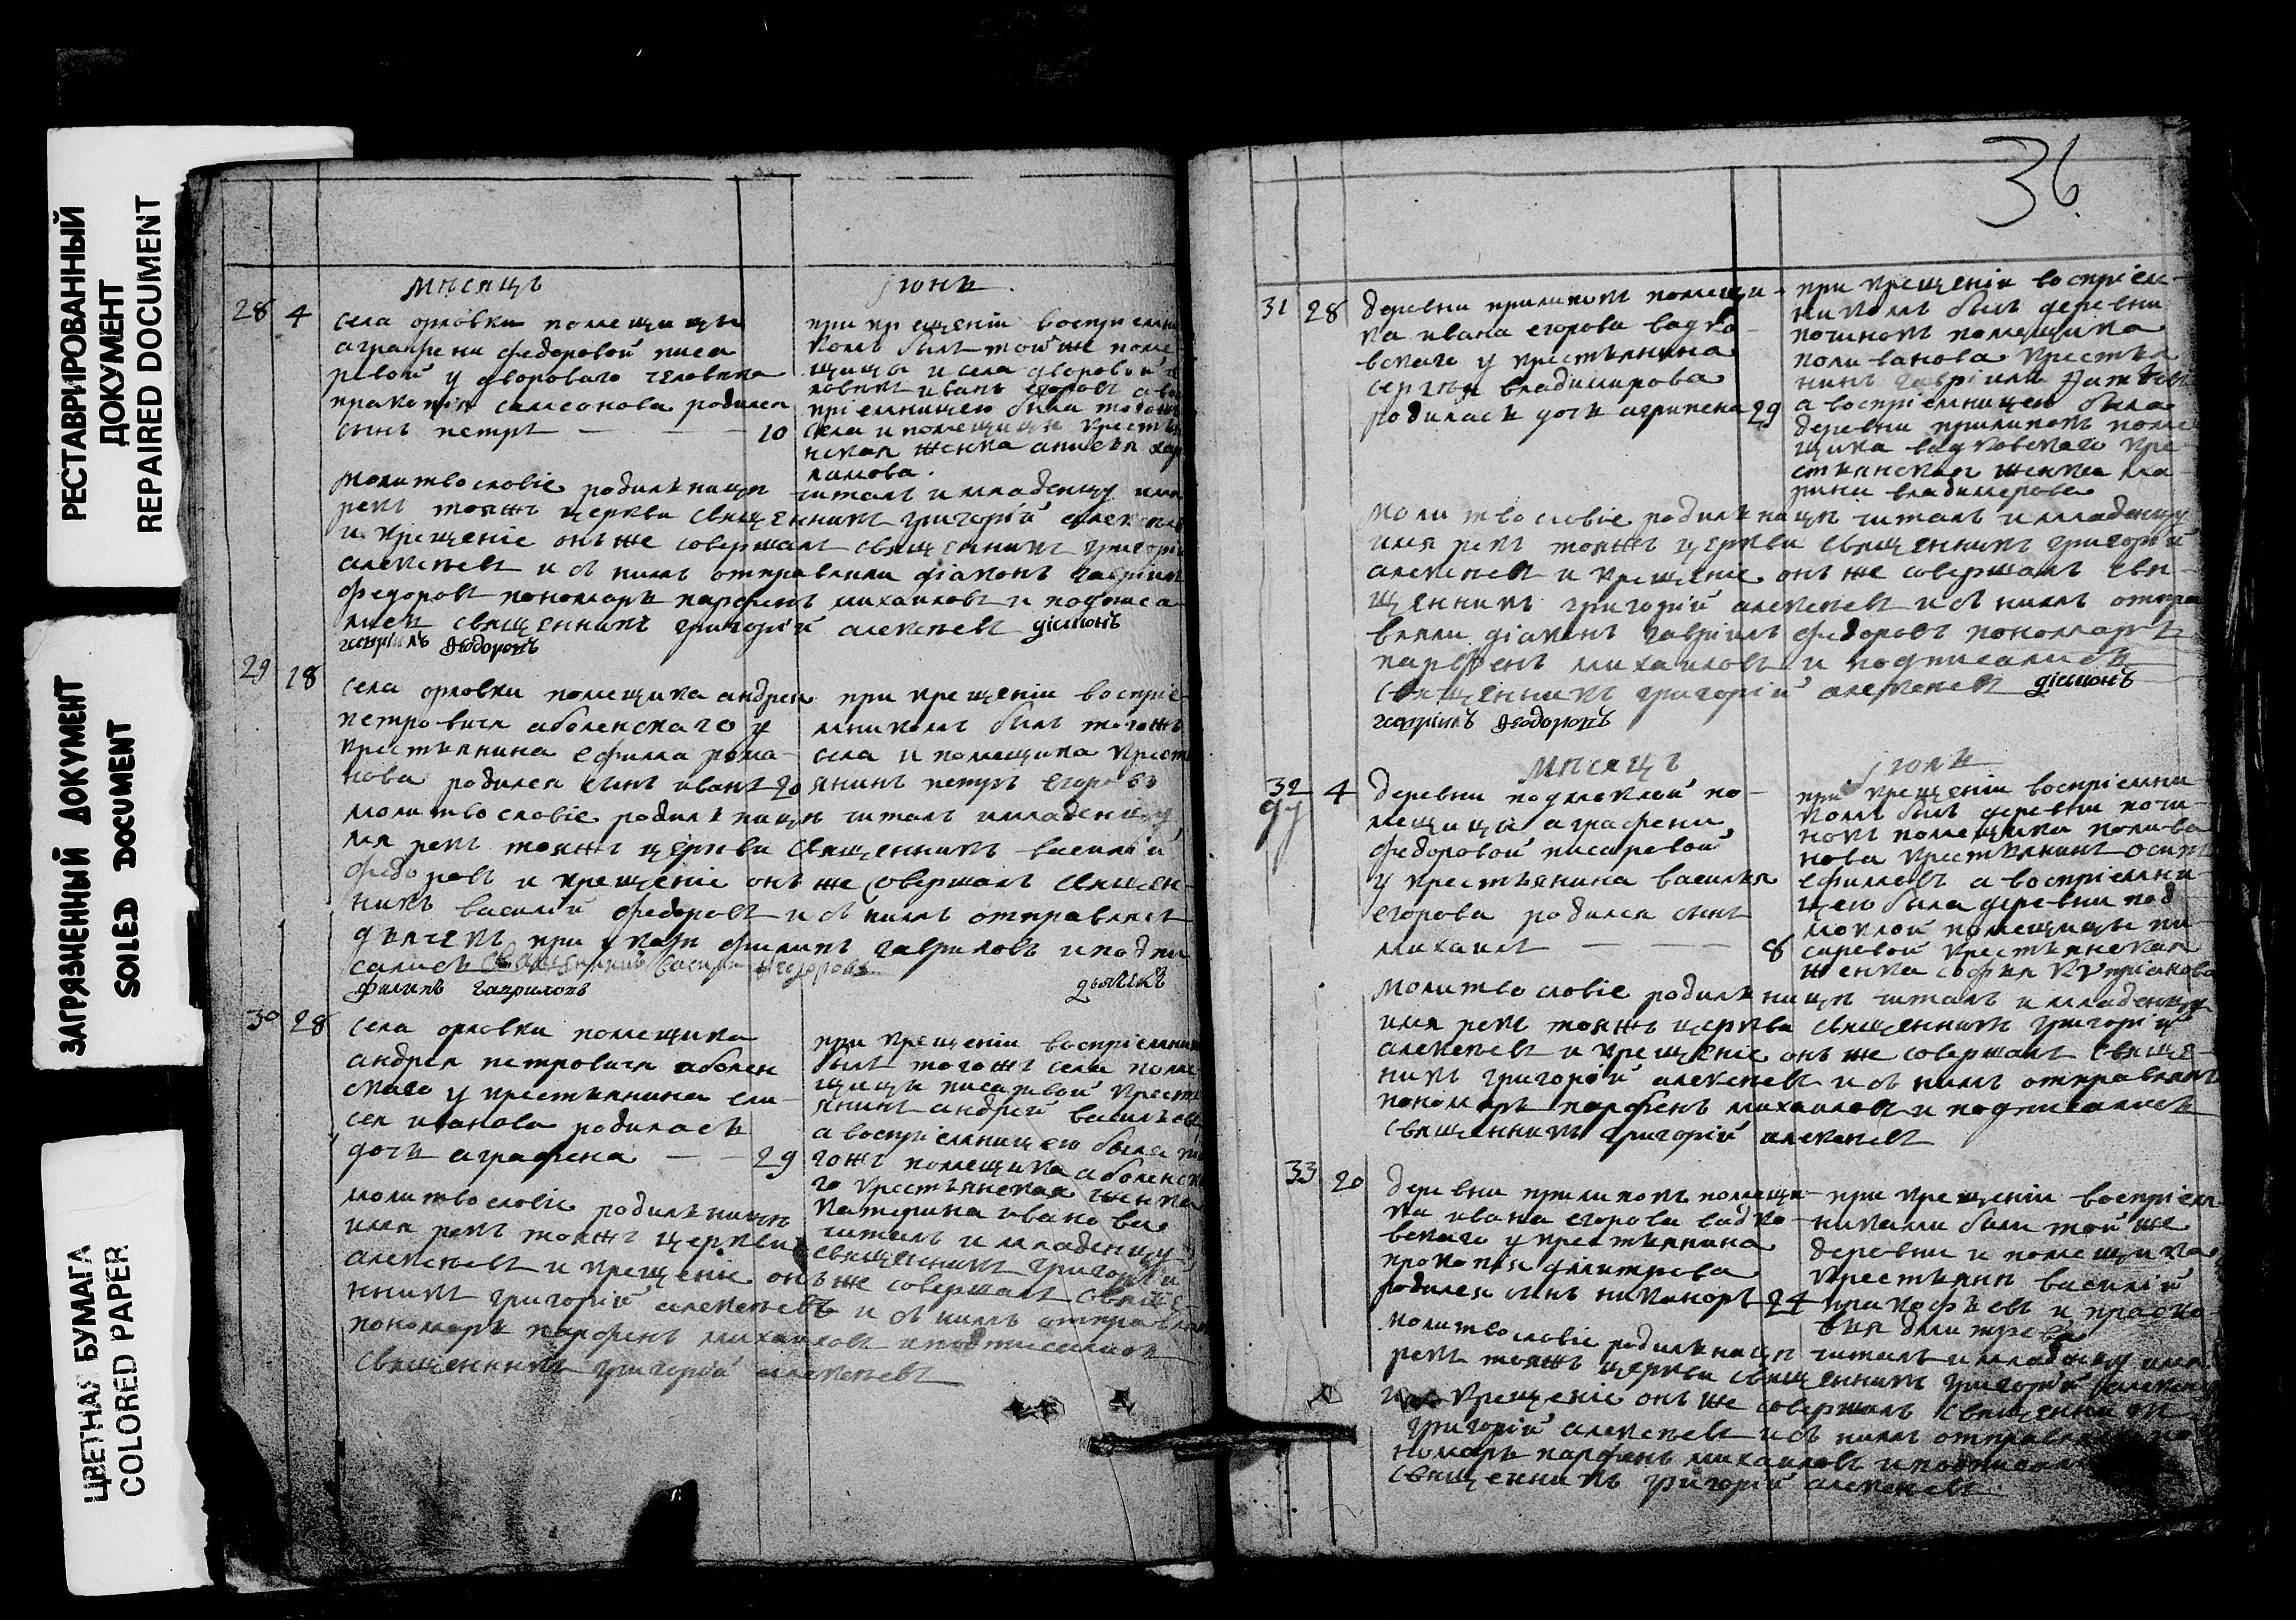 РЕСТАВРИРОВАННЫЙ
ДОКУМЕНТ
REPAIRED DOCUMENT
ЗАГРЯЗНЕННЫЙ ДОКУМЕНТ
SOILED DOCUMENT
ЦВЕТНАЯ БУМАГА
COLORED PAPER
мѣсяцъ
28 4 села орловки помещицы
аграфены федоровой писа
ревой у дворового человека
пракопія самсонова родился
сынъ петръ — — — 10
іюнь
при крещеніи воспріемни
комъ былъ той же поме
щицы и села дворовой че
ловекъ иванъ егоровъ а во
пріемницею была тогожъ
села и помещицы крестья
нская женка анисья хар
ламова.
молитвословіе родильницѣ читалъ и младенцу имя
рекъ тояжъ церкви священникъ григорій алексѣевъ
и крещеніе онъ же совершалъ священникъ григорій
алексѣевъ и съ нимъ отправляли діаконъ гавріилъ
федоровъ пономарь парфенъ михаиловъ и подписа
лись священникъ григорій алексѣевъ діаконъ
гавріилъ Ѳеодоровъ
29 18 села орловки помещика андрея
петровича аболенскаго у
крестьянина ефима рома-
нова родился сынъ иванъ 20
при крещеніи воспріе-
мникомъ былъ тогожъ
села и помещика крест
янинъ петръ егоровъ
молитвословіе родильницѣ читалъ и младенцу
мя рекъ тояжъ церкви священникъ василій
федоровъ и крещеніе онъ же совершалъ священ-
никъ василій федоровъ и съ нимъ отправлялъ
дьячекъ при указѣ филипъ гавриловъ и подпи
сались священникъ василій Ѳедоровъ
филипъ гавриловъ дьячекъ
30 28 села орловки помещика
андрея петровича аболен
скаго у крестьянина ели-
сея иванова родилась
дочь аграфена — — 29
при крещеніи воспріемник
былъ тогожъ села поме
щицы писаревой крест
янинъ андрей васильевъ
а воспріемницею была то
гожъ помещика аболенска
го крестьянская женка
катерина иванова
молитвословіе родильницѣ читалъ и младенцу
имя рекъ тояжъ церкви священникъ григорій
алексѣевъ и крещеніе онъ же совершалъ свяще-
нникъ григорій алексѣевъ и съ нимъ отправлялъ
пономарь парфенъ михаиловъ и подписались
священникъ григорій алексѣевъ
36
31 28 деревни прилипокъ помещи-
ка ивана егорова вадко-
вскаго у крестьянина
сергѣя владимирова
родилась дочь агрипена 29
при крещеніи воспріем-
никомъ былъ деревни
починокъ помещика
поливанова крестья
нинъ гавріила
а воспріемницею была
деревни прилипокъ поме
щика вадковскаго кре
стьянская женка ма
рина владимерова
молитвословіе родильницѣ читалъ и младенцу
имя рекъ тояжъ церкви священникъ григорій
алексѣевъ и крещеніе онъ же совершалъ свя-
щенникъ григорій алексѣевъ и съ нимъ отпра
вляли діаконъ гавріилъ федоровъ пономарь
парфенъ михаиловъ и подписались
священникъ григорій алексѣевъ діаконъ
гавріилъ Ѳеодоровъ
мѣсяцъ
іюль
32 4 деревни подмоклой по-
мещицы аграфены
федоровой писаревой
у крестьянина василья
егорова родился сынъ
михаилъ — — — 8
при крещеніи воспріемни
комъ былъ деревни почи-
нокъ помещика полива
нова крестьянинъ осипъ
ефимовъ а воспріемни-
цею была деревни под
моклой помещицы пи-
саревой крестьянская
женка софья кипріанова
молитвословіе родильницѣ читалъ и младенцу
имя рекъ тояжъ церкви священникъ григорій
алексѣевъ и крещеніе онъ же совершалъ священ-
никъ григорій алексѣевъ и съ нимъ отправлялъ
пономарь парфенъ михаиловъ и подписались
священникъ григорій алексѣевъ
33 20 деревни прилипокъ помещи-
ка ивана егорова вадко-
вскаго у крестьянина
прокопія дмитрева
родился сынъ никаноръ 24
при крещеніи воспріем
никами были той же
деревни и помещика
крестьяне василій
пракофьевъ и праско
вья дмитрева
молитвословіе родильницѣ читалъ и младенцу имя
рекъ тояжъ церкви священникъ григорій алексѣевъ
и крещеніе онъ же совершалъ священникъ
григорій алексѣевъ и съ нимъ отправлялъ по
номарь парфенъ михаиловъ и подписали
священникъ григорій алексѣевъ.